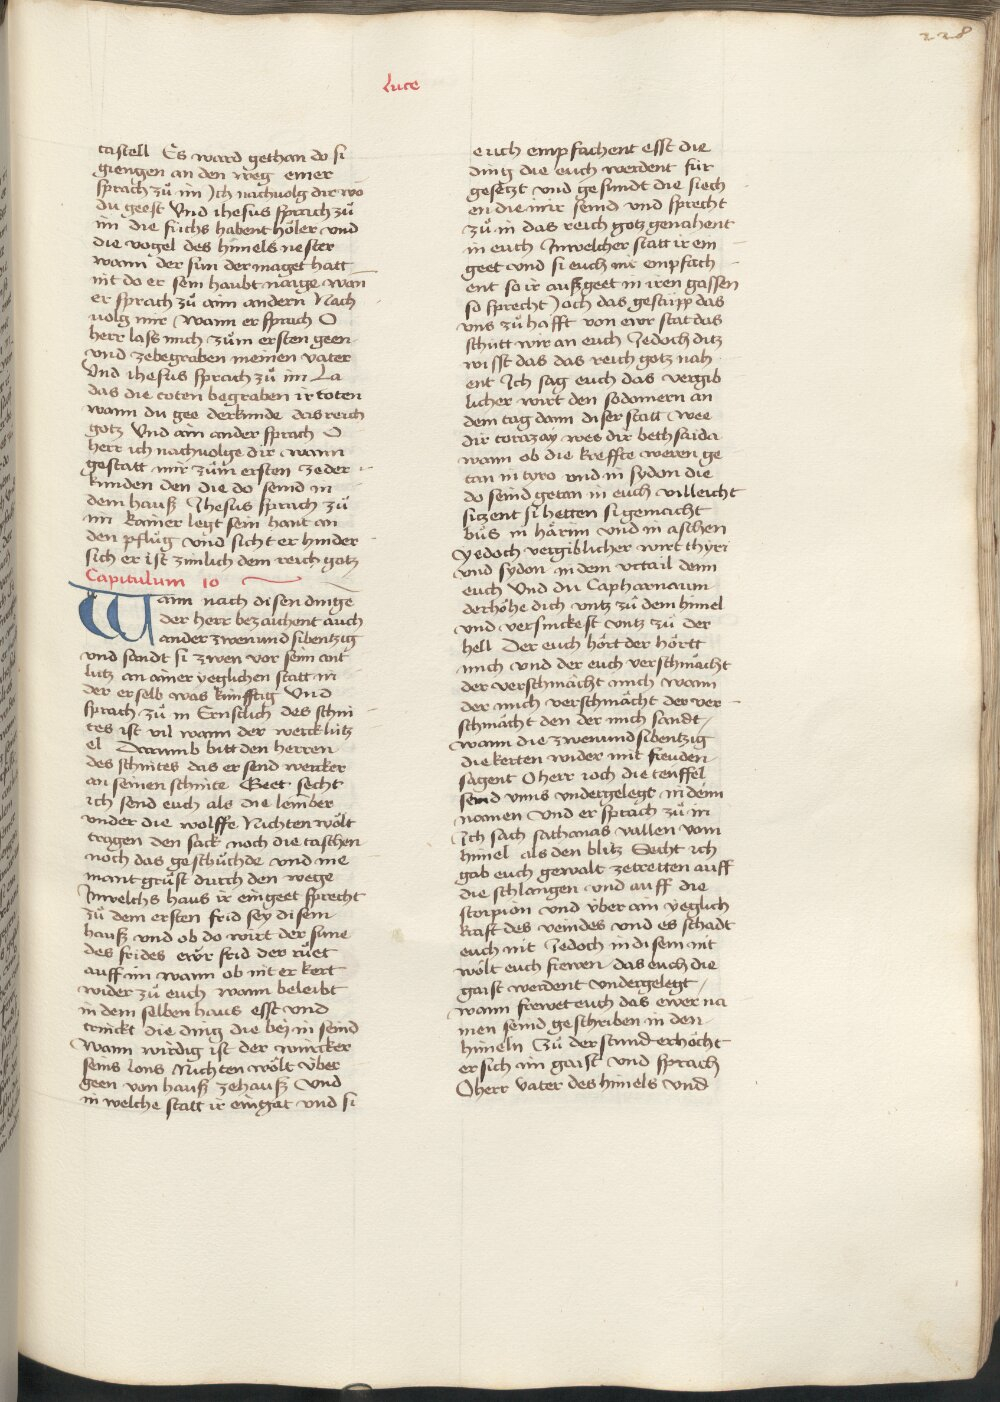 228
Luce
castell Es ward gethan do si
giengen an den weg einer
sprach zů im Ich nachvolg dir wo
du geest Und ihesus sprach zů
im die fuchs habent höler vnd
die vogel des himels nester
wann der sun der maget hatt
nit do er sein haubt naige wan
er sprach zů aim andern Nach
volg mir wann er sprach O
herr lass mich zům ersten geen
vnd zebegraben meinen vater
Und ihesus sprach zů im La
das die toten begraben ir toten
wann du gee derkunde das reich
gotz Und ain ander sprach O
herr ich nachvolge dir wann
gestatt mir zům ersten zeder
kunden den die do seind in
dem hauß Ihesus sprach zů
im kainer legt sein hant an
den pflůg vnd sicht er hinder
sich er ist zimlich dem reich gotz
Capitulum 10
Wann nach disen dinge
der herr bezaichent auch
ander zwenund sibentzig
vnd sandt si zwen vor seim ant
lutz an ainer yeglichen statt in
der er selb was kunfftig Und
sprach zů in Ernstlich des schni
tes ist vil wann der wercklutz
el Darumb bitt den herren
des schnites das er send wercker
an seinen schnite Geet secht
ich send euch als die lember
vnder die wolffe Nichten wölt
tragen den sack noch die taschen
noch das geschüchde vnd nie
mant grüst durch den wege
Inwelchs haus ir eingeet sprecht
zů dem ersten frid sey disem
hauß vnd ob do wirt der sune
des frides ewr frid der růet
auff im wann ob nit er kert
wider zů euch wann beleibt
in dem selben haus esst vnd
trinckt die ding die bei in seind
Wann wirdig ist der wircker
seins lons Nichten wölt über
geen von hauß zehauß Und
in welche statt ir eingat vnd si
euch empfachent esst die
ding die euch werdent für
gesetzt vnd gesundt die siech
en die inir seind vnd sprecht
zů in das reich gotz genahent
in euch Inwelcher statt ir ein
geet vnd si euch nit empfach
ent so ir außgeet in iren gassen
so sprecht Joch das gestüpp das
vns zů hafft von ewr stat das
schütt wir an euch Jedoch ditz
wisst das das reich gotz nah
ent Ich sag euch das vergib
licher wirt den sodomern an
dem tag dann diser statt Wee
dir corazay wes dir bethsaida
wann ob die kreffte weren ge
tan in tyro vnd in sydon die
do seind getan in euch villeicht
sitzent si hetten si gemacht
bůs in härim vnd in aschen
Yedoch vergiblicher wirt thyri
vnd sydon in dem vrtail denn
euch Und du Capharnaum
derhöhe dich vntz zů dem himel
vnd versinckest vntz zů der
hell Der euch hört der hörtt
mich vnd der euch verschmächt
der verschmächt mich wann
der mich verschmächt der ver
schmächt den der mich sandt
wann die zwenund sibentzig
die kerten wider mit freuden
sagent O herr ioch die teuffel
seind vnns vndergelegt in deim
namen Und er sprach zů in
Ich sach sathanas vallen vom
himel als den blitz Secht ich
gab euch gewalt zetretten auff
die schlangen vnd auff die
storpion vnd über ain yeglich
kraft des veindes vnd es schadt
euch nit Jedoch in disem nit
wölt euch frewen das euch die
gaist werdent vndergelegt
wann frewet euch das ewer na
men seind geschriben in den
himeln Zů der stund erhöcht
er sich im gaist vnd sprach
O herr vater des himels vnd